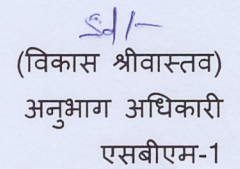 Sd/-
(विकास श्रीवास्तव)
अनुभाग अधिकारी
एसबीएम-1